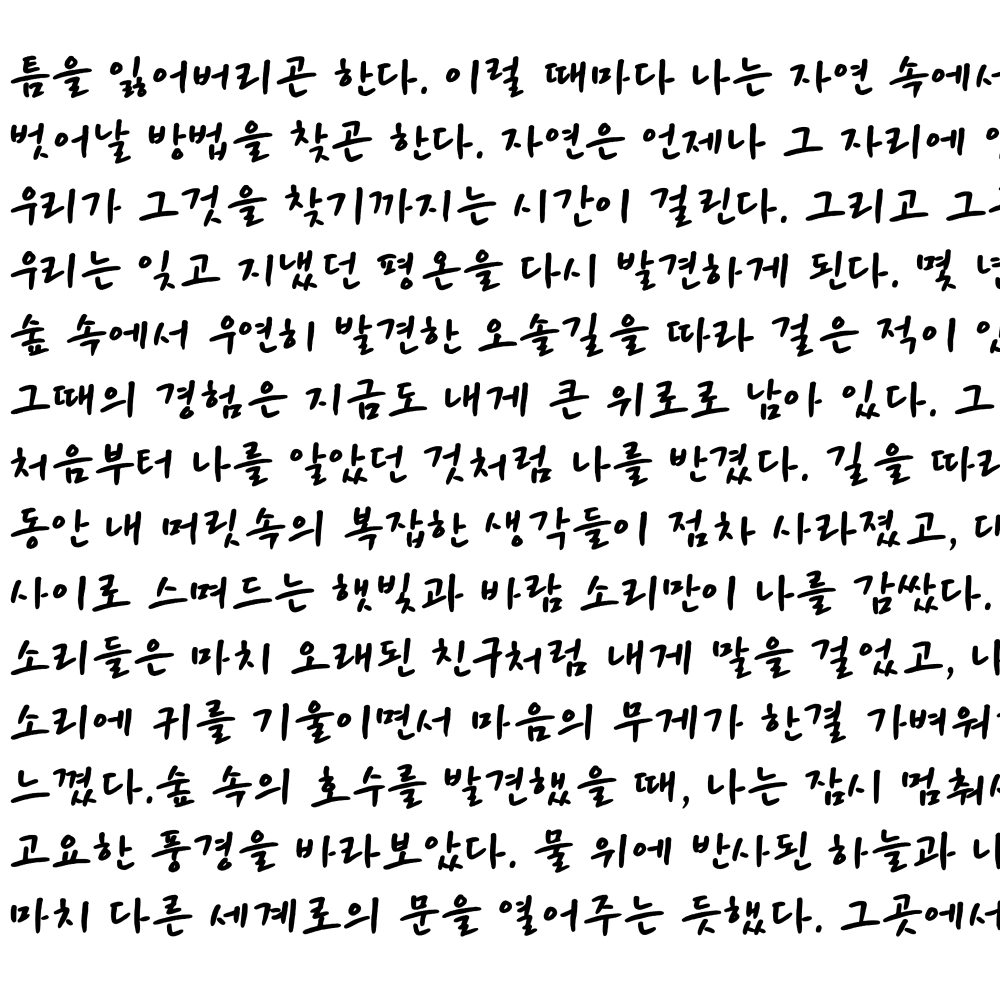 틈을 잃어버리곤 한다. 이럴 때마다 나는 자연 속에서
벗어날 방법을 찾곤 한다. 자연은 언제나 그 자리에
우리가 그것을 찾기까지는 시간이 걸린다. 그리고
우리는 잊고 지냈던 평온을 다시 발견하게 된다. 몇
숲 속에서 우연히 발견한 오솔길을 따라 걸은 적이
그때의 경험은 지금도 내게 큰 위로로 남아 있다. 그
처음부터 나를 알았던 것처럼 나를 반겼다. 길을
동안 내 머릿속의 복잡한 생각들이 점차 사라졌고,
사이로 스며드는 햇빛과 바람 소리만이 나를 감쌌다.
소리들은 마치 오래된 친구처럼 내게 말을 걸었고,
소리에 귀를 기울이면서 마음의 무게가 한결
느꼈다.숲 속의 호수를 발견했을 때, 나는 잠시
고요한 풍경을 바라보았다. 물 위에 반사된 하늘과
마치 다른 세계로의 문을 열어주는 듯했다. 그곳에서